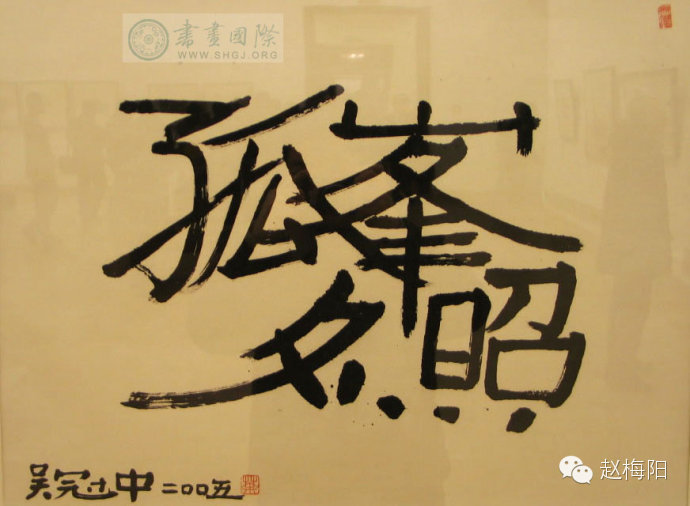 書畫國際
WWW.SHGJ.ORG
孤峯
夕照
吴冠中 二〇〇五
赵梅阳